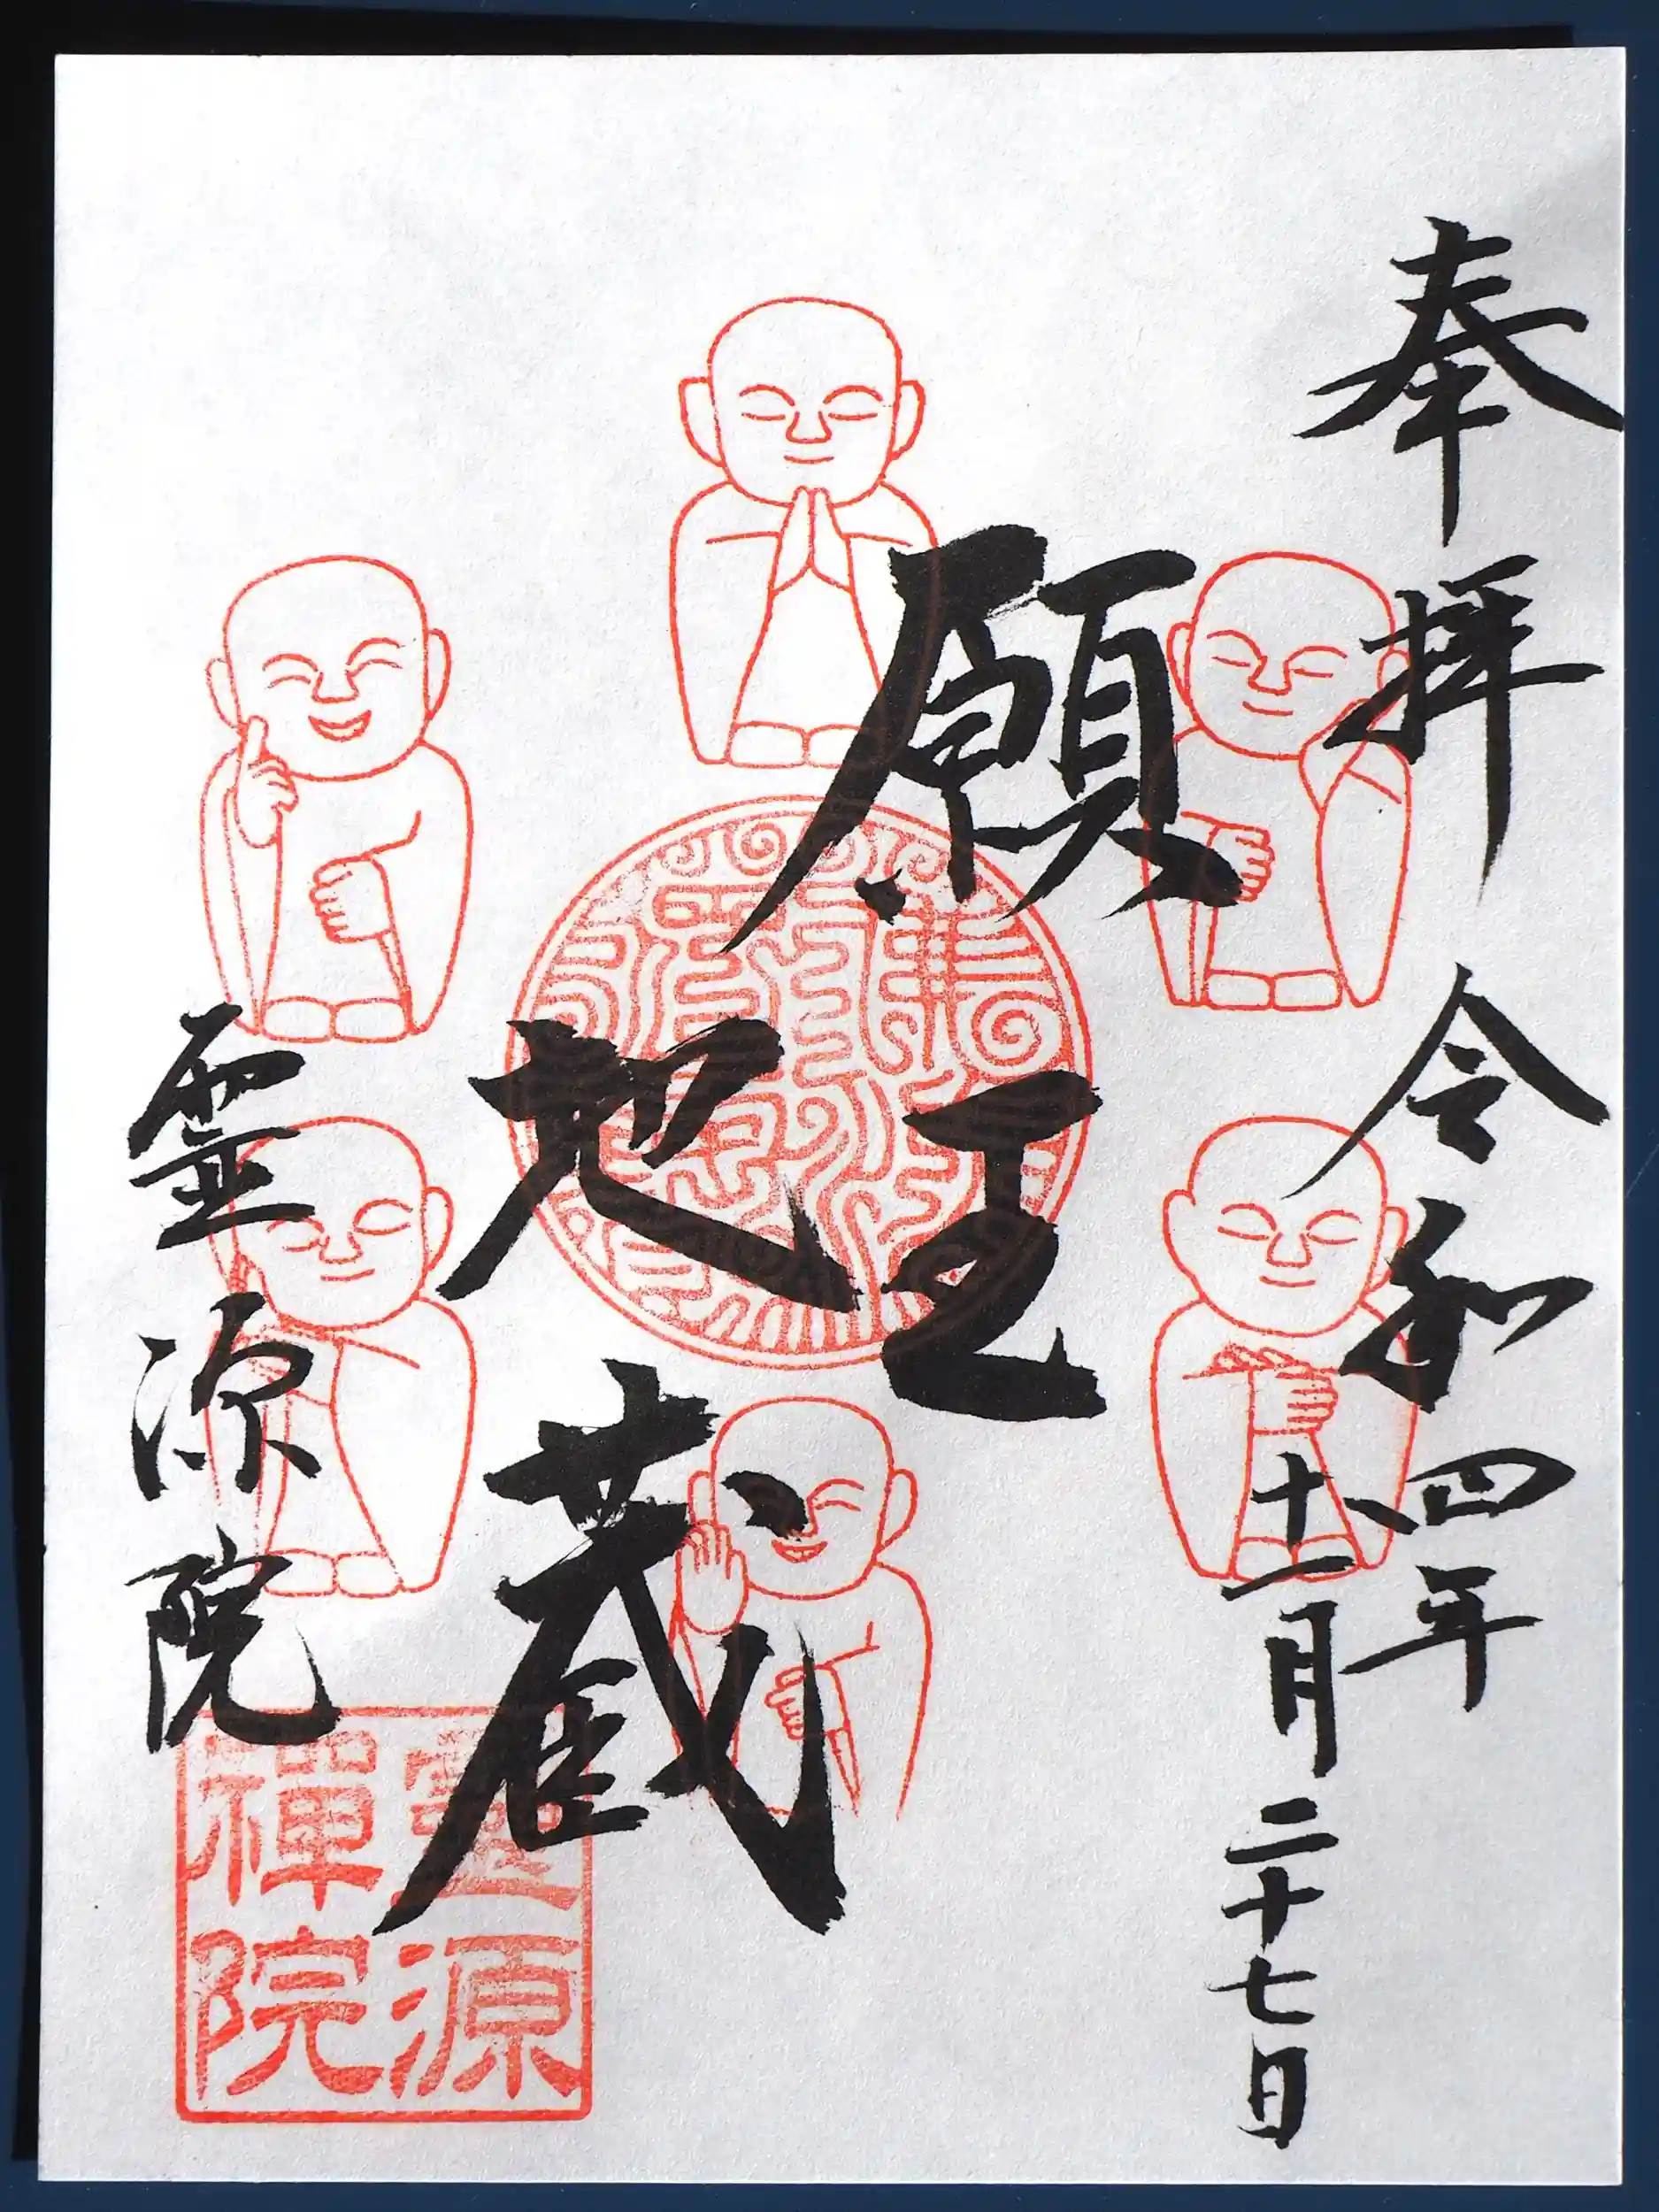 奉拝
令和四年
十一月二十七日
願王
地蔵
霊源院
霊源
禅院